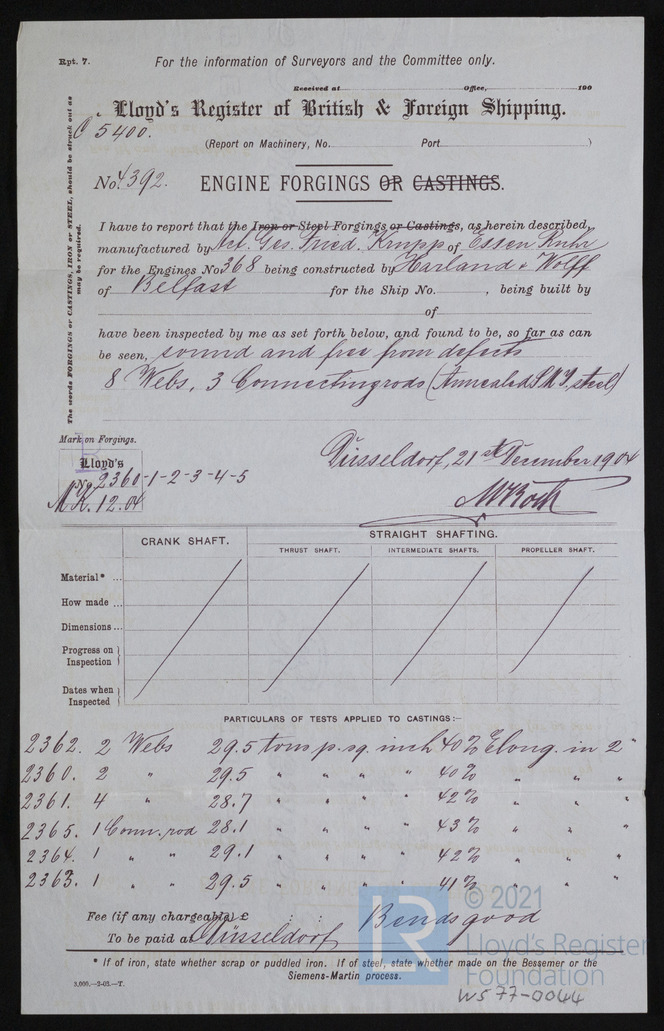 Rpt. 7.
For the information of Surveyors and the Committee only.
Received at Office, 190
Lloyd's Register of British & Foreign Shipping.
C 5400.
(Report on Machinery, No. Port )
No. 4392. ENGINE FORGINGS OR CASTINGS.
The words FORGINGS or CASTINGS, IRON or STEEL, should be struck out as
may be required.
I have to report that the Iron or Steel Forgings or Castings, as herein described,
manufactured by Act. Ges. Fried. Krupp of Essen Ruhr
for the Engines No 368 being constructed by Harland & Wolff
of Belfast for the Ship No. , being built by
of
have been inspected by me as set forth below, and found to be, so far as can
be seen, sound and free from defects
8 Webs, 3 Connectingrods (Annealed S.M.I. steel)
Mark on Forgings.
Lloyd's
No. 2360-1-2-3-4-5
M.K. 12.04
Düsseldorf, 21st December 1904
CRANK SHAFT.
STRAIGHT SHAFTING.
THRUST SHAFT. INTERMEDIATE SHAFTS. PROPELLER SHAFT.
Material* ...
How made ...
Dimensions ...
Progress on
Inspection
Dates when
Inspected
PARTICULARS OF TESTS APPLIED TO CASTINGS:—
2362. 2 Webs 29.5 tons p. sq. inch 40% Elong. in 2"
2360. 2 " 29.5 " " " " 40% " " "
2361. 4 " 28.7 " " " " 42% " " "
2365. 1 Conn. rod 28.1 " " " " 43% " " "
2364. 1 " " 29.1 " " " " 42% " " "
2363. 1 " " 29.5 " " " " 41% " " "
Fee (if any chargeable) £ : : Bends good
To be paid at Düsseldorf
* If of iron, state whether scrap or puddled iron. If of steel, state whether made on the Bessemer or the
Siemens-Martin process.
3,000.—2-03.—T.
W577-0044
LR
© 2021
Lloyd's Register
Foundation